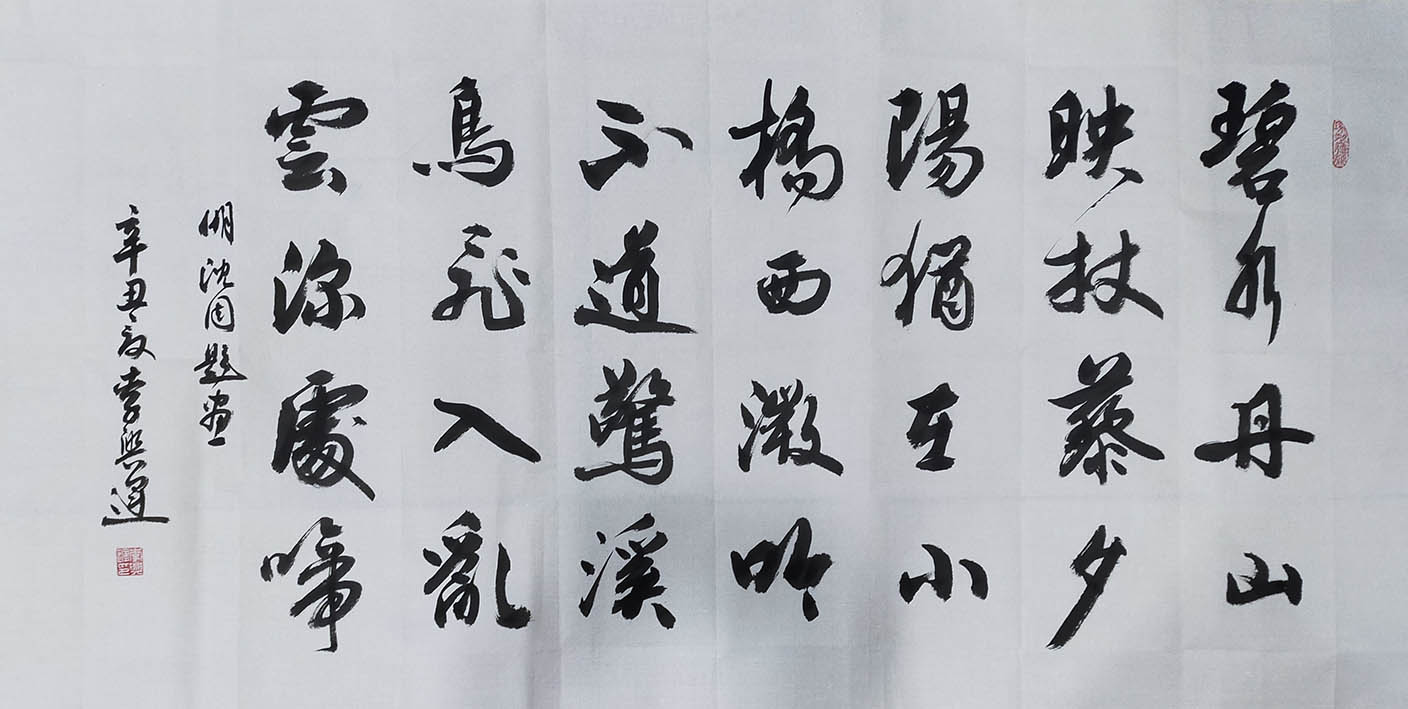 碧水丹山
映杖藜夕
陽猶在小
橋西微吟
不道驚溪
鳥飛入亂
雲深處啼
明沈周題畫
辛丑夏李興運